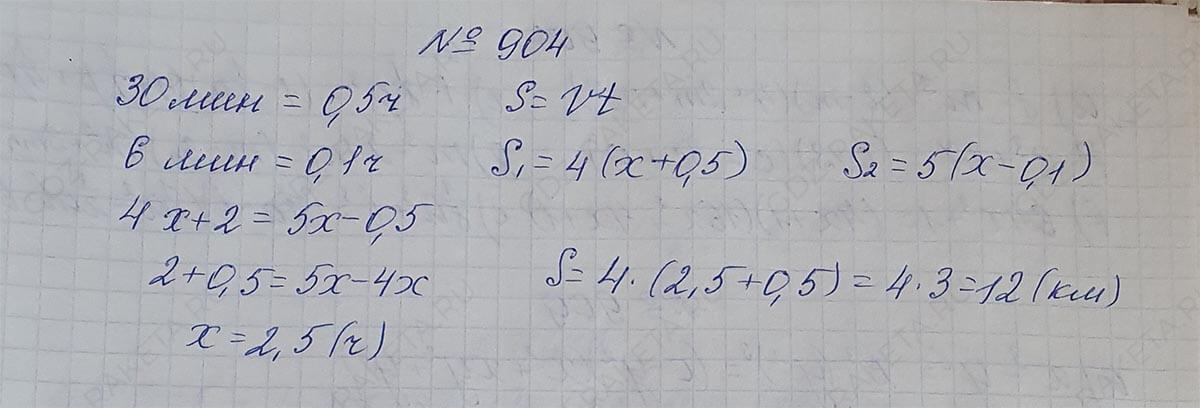 № 904
30 мин = 0,5ч S = vt
6 мин = 0,1ч S₁ = 4(x+0,5) S₂ = 5(x-0,1)
4x+2 = 5x-0,5
2+0,5 = 5x-4x S = 4·(2,5+0,5) = 4·3 = 12 (км)
x = 2,5(ч)